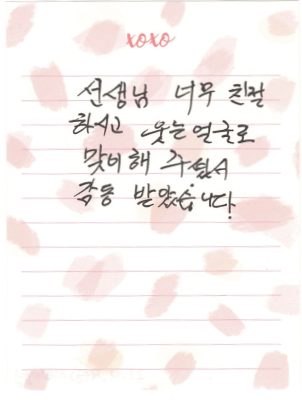 xoxo
선생님 너무 친절
하시고 웃는 얼굴로
맞이해 주셔서
감동 받았습니다.